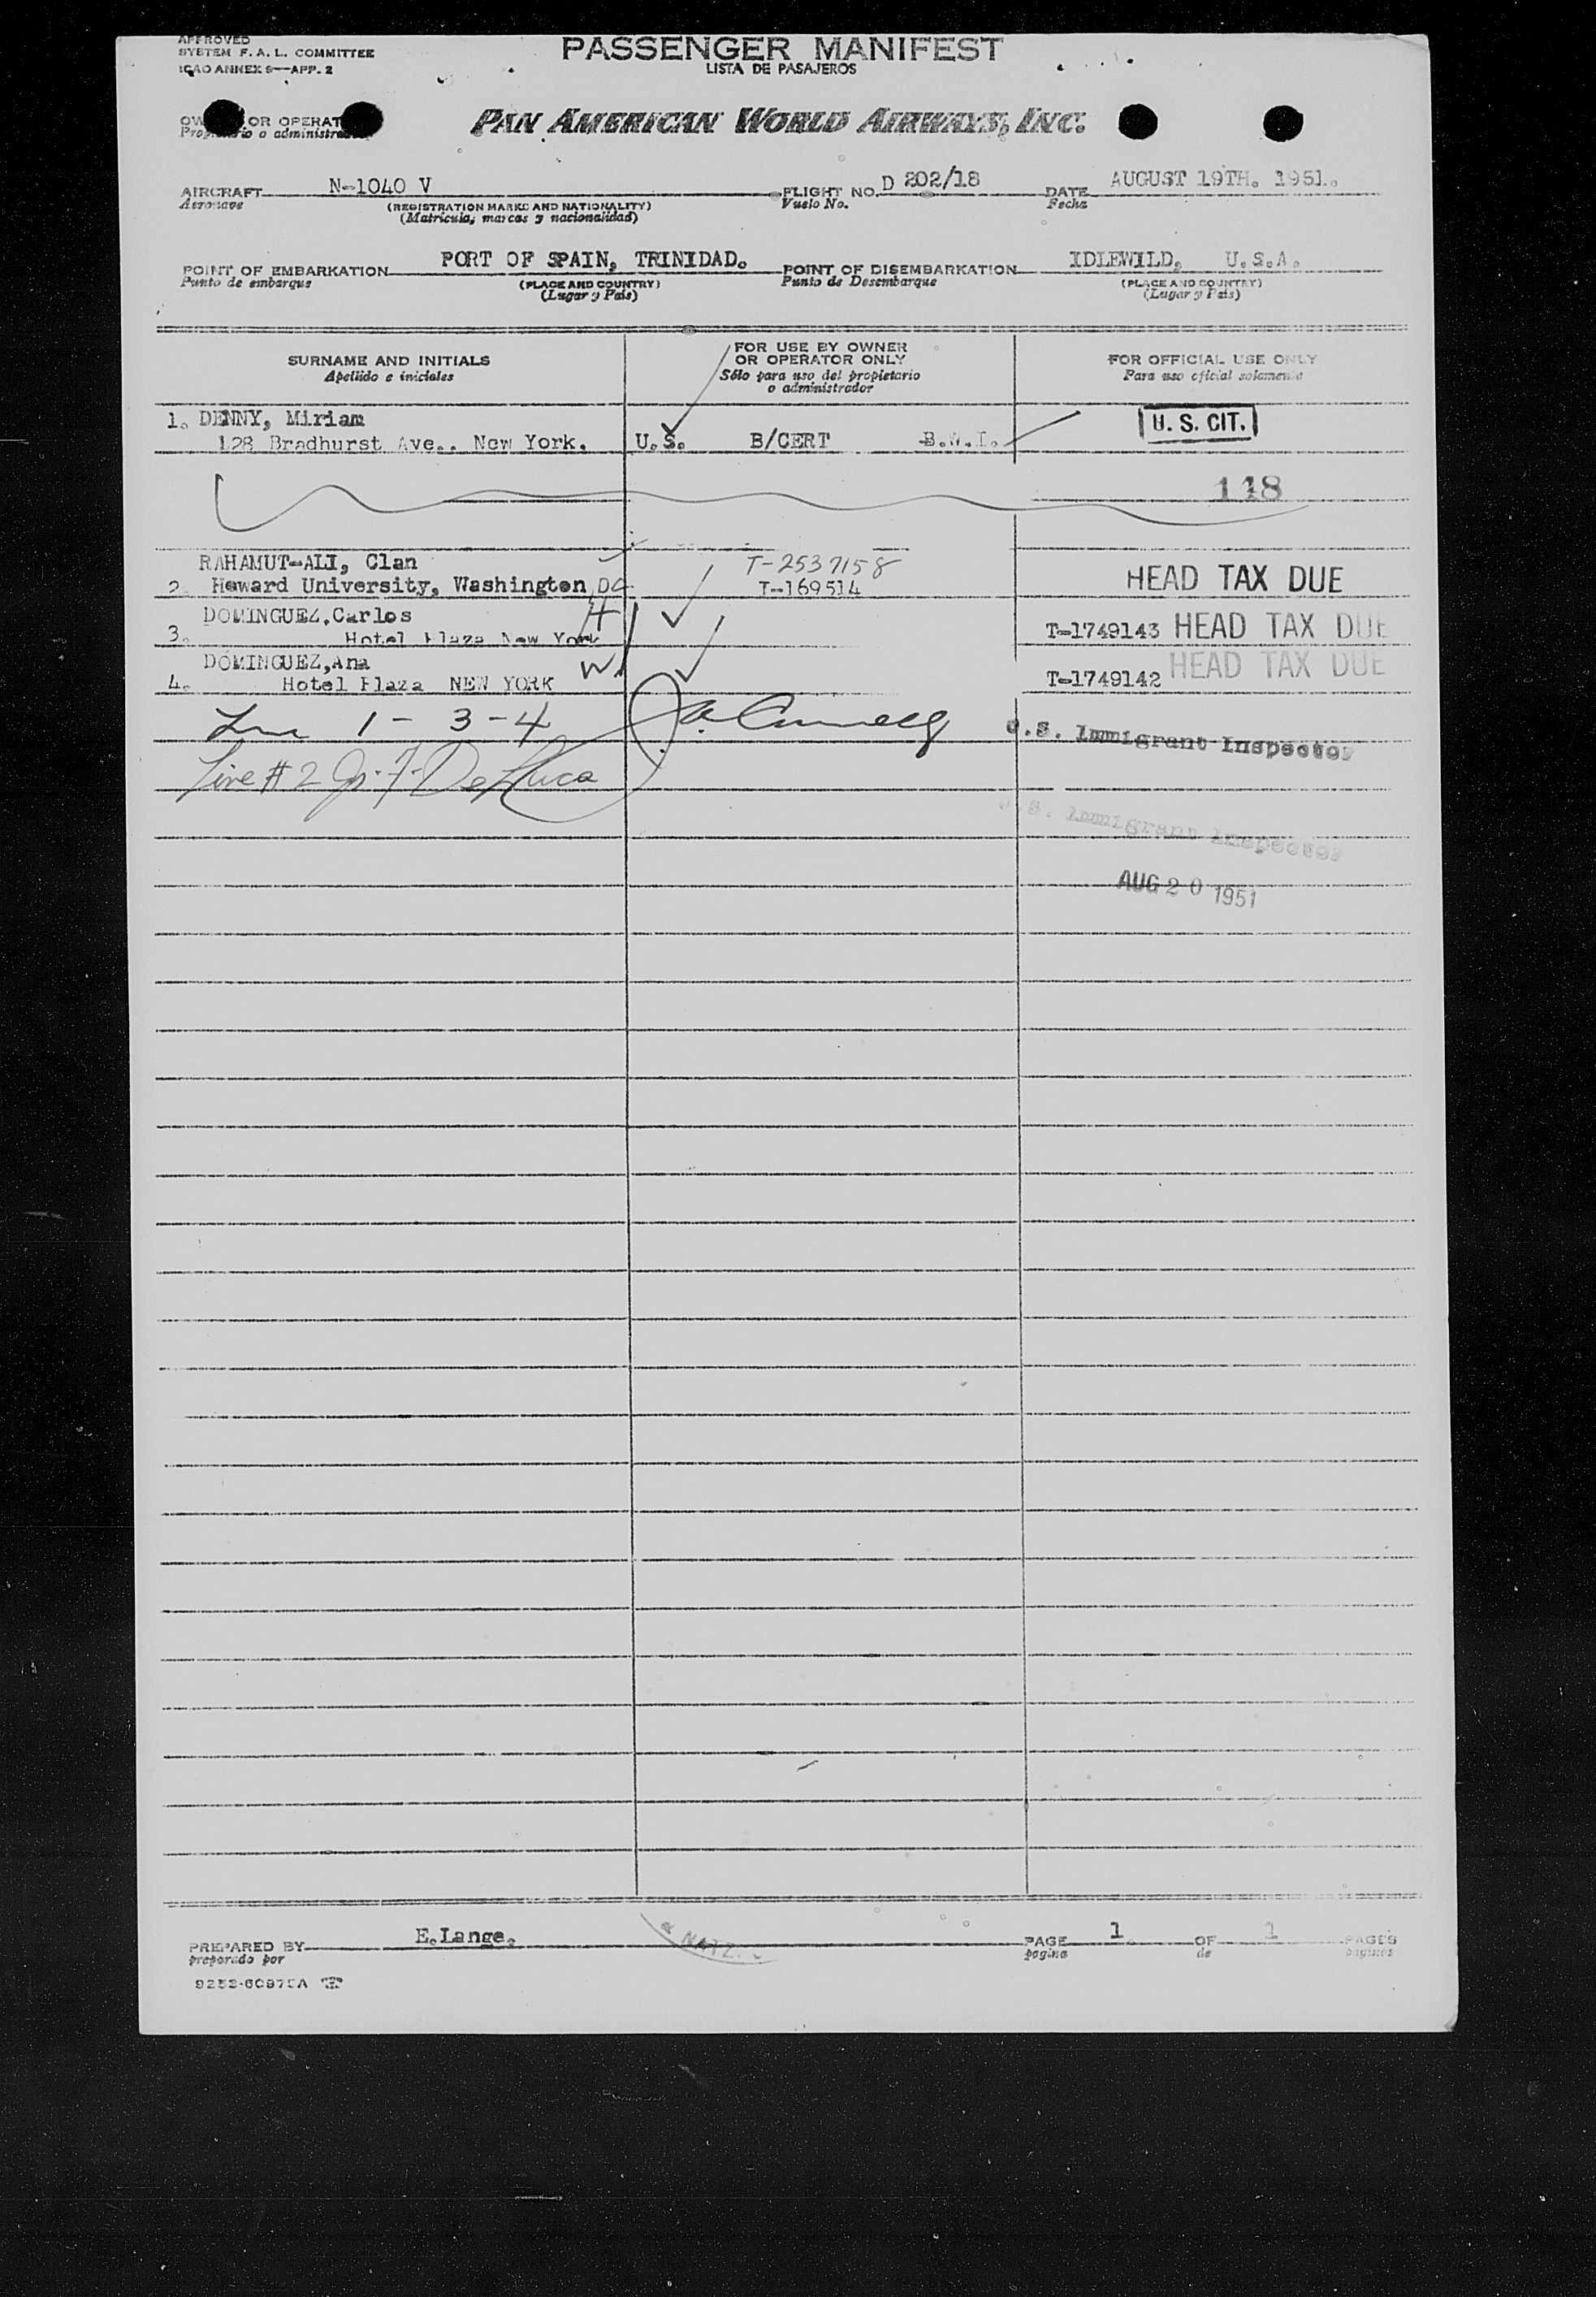 APPROVED
SYSTEM F. A. L. COMMITTEE
ICAO ANNEX 9—APP. 2
PASSENGER MANIFEST
LISTA DE PASAJEROS
OR OPERAT
PAN AMERICAN WORLD AIRWAYS, INC.
AIRCRAFT N-1040 V FLIGHT NO. D 202/18 DATE AUGUST 19TH. 1951.
Aeronave (REGISTRATION MARKS AND NATIONALITY) Vuelo No. Fecha
(Matricula, marcas y nacionalidad)
POINT OF EMBARKATION PORT OF SPAIN, TRINIDAD. POINT OF DISEMBARKATION IDLEWILD, U.S.A.
Punto de embarque (PLACE AND COUNTRY) Punto de Desembarque (PLACE AND COUNTRY)
(Lugar y Pais) (Lugar y Pais)
SURNAME AND INITIALS
Apellido e iniciales
FOR USE BY OWNER
OR OPERATOR ONLY
Sólo para uso del propietario
o administrador
FOR OFFICIAL USE ONLY
Para uso oficial solamente
1. DENNY, Miriam
128 Bradhurst Ave.. New York. U.S. B/CERT B.W.I. U. S. CIT.
148
RAHAMUT-ALI, Clan T-2537158
2. Howard University, Washington DC T-169514 HEAD TAX DUE
DOMINGUEZ,Carlos H
3. Hotel Plaza New York T-1749143 HEAD TAX DUE
DOMINGUEZ,Ana W
4. Hotel Plaza NEW YORK T-1749142 HEAD TAX DUE
1 - 3 - 4 U.S. Immigrant Inspector
Line # 2 DeLuca
U.S. Immigrant Inspector
AUG 20 1951
PREPARED BY E.Lange. PAGE 1 OF 1 PAGES
preparado por pagina de paginas
& NATZ.
9252-60975A